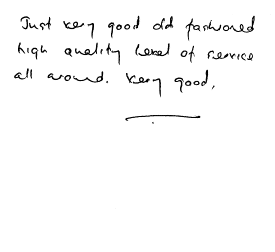 Just very good old fashioned
high quality level of service
all around. Very good.